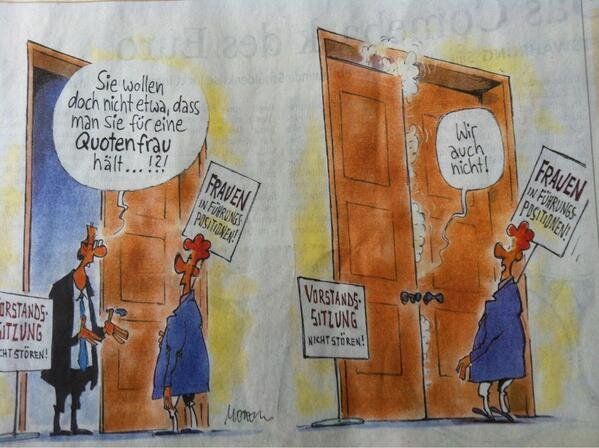 Sie wollen
doch nicht etwa, dass
man Sie für eine
Quotenfrau
hält...!?!
FRAUEN
IN FÜHRUNGS
POSITIONEN!
VORSTANDS-
SITZUNG
NICHT STÖREN!
Wir
auch
nicht!
FRAUEN
IN FÜHRUNGS
POSITIONEN!
VORSTANDS-
SITZUNG
NICHT STÖREN!